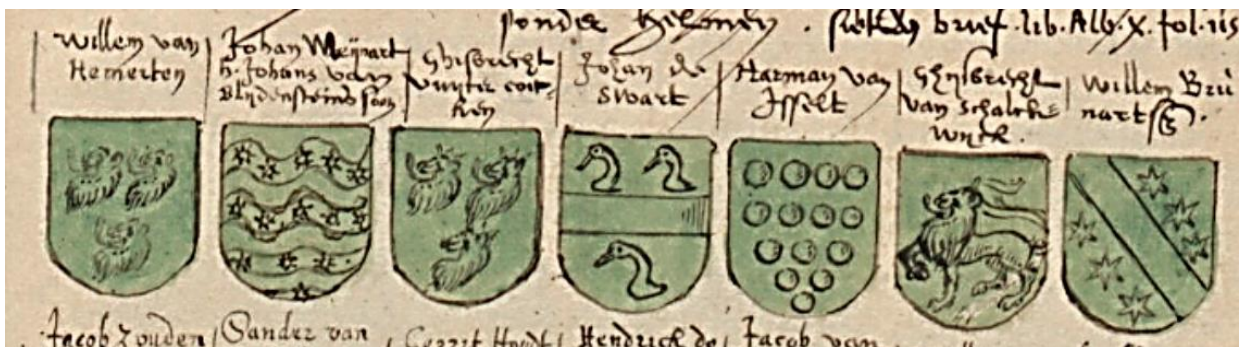 sonder helmen . sietten brief . lib. Alb. X. fol. 115
Willem van
Hemerten
Johan Meijnart
h. Johans van
Blijdensteins soon
Ghisbrecht
vuyter coit-
ken
Johan de
Swart
Harman van
Isselt
Ghijsbrecht
van Schalck=
wyck.
Willem Brü
narts
Jacob Zouden
Sander van
Gerrit Hondt
Hendrick de
Jacob van